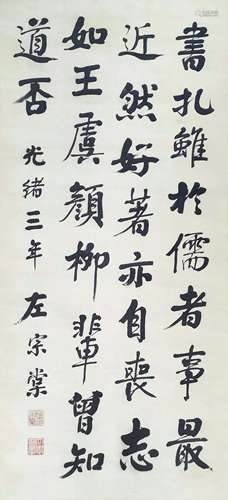 書札雖於儒者事最
近然好著亦自喪志
如王虞顏柳輩曾知
道否 光緒三年 左宗棠